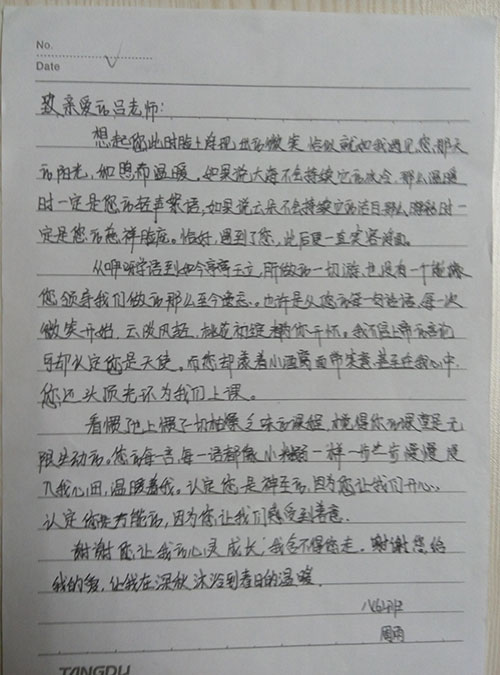 No.
Date
致亲爱的吕老师:
想起您此时脸上浮现出的微笑 恰似就如我遇见您那天
的阳光,如照布温暖。如果说大海不会持续它的冰冷,那么温暖
时一定是您的轻声絮语,如果说云朵不会持续它的洁白那么 时一
定是您的慈祥脸庞。恰好,遇到了您,此后便一直笑容满面。
从咿呀学语到如今亭亭玉立,所做的一切游 也没有一个能像
您领导我们做的那么至今难忘。也许是从您的每一句话语,每一次
微笑开始,云淡风轻,桃花初绽
却认定您是天使。而您却素着小酒窝面带笑意,甚至在我心中,
您还头顶光环为我们上课。
看惯了也上惯了一切枯燥乏味的课程,觉得你的课堂是无
限生动的。您的每言,每一语都像小 一样一步步 慢慢浸
入我心田,温暖着我。认定您是神圣的,因为您让我们开心,
认定你是万能的,因为您让我们感受到善意.
谢谢您让我的心灵成长,我舍不得您走。谢谢您给
我的爱,让我在深秋沐浴到春日的温暖.
周雨
TANGDU